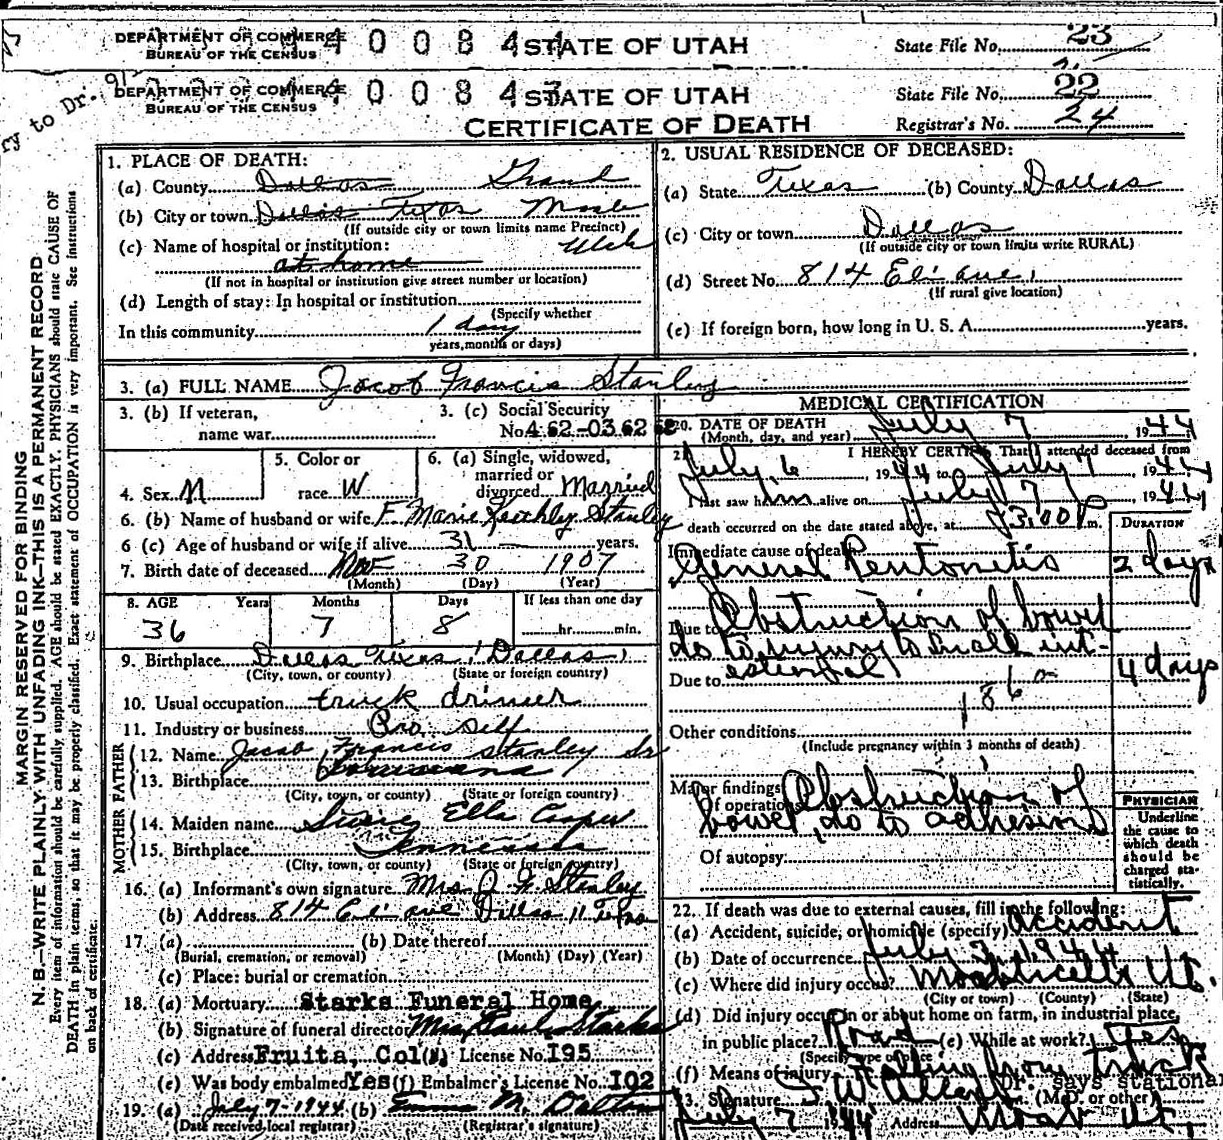 DEPARTMENT OF COMMERCE
BUREAU OF THE CENSUS
4 0 0 8 4 4
STATE OF UTAH
State File No. 23
ry to Dr.
DEPARTMENT OF COMMERCE
BUREAU OF THE CENSUS
4 0 0 8 4 3
STATE OF UTAH
State File No. 22
CERTIFICATE OF DEATH
Registrar's No. 24
MARGIN RESERVED FOR BINDING
N. B.—WRITE PLAINLY, WITH UNFADING INK—THIS IS A PERMANENT RECORD
Every item of information should be carefully supplied. AGE should be stated EXACTLY. PHYSICIANS should state CAUSE OF
DEATH in plain terms, so that it may be properly classified. Exact statement of OCCUPATION is very important. See instructions
on back of certificate.
1. PLACE OF DEATH:
(a) County Dallas Grand
(b) City or town Dallas Texas Moab
(If outside city or town limits name Precinct)
(c) Name of hospital or institution: Utah
at home
(If not in hospital or institution give street number or location)
(d) Length of stay: In hospital or institution
(Specify whether
In this community 1 day
years, months or days)
2. USUAL RESIDENCE OF DECEASED:
(a) State Texas (b) County Dallas
(c) City or town Dallas
(If outside city or town limits write RURAL)
(d) Street No. 814 Eli ave,
(If rural give location)
(e) If foreign born, how long in U. S. A. years.
3. (a) FULL NAME Jacob Francis Stanley
3. (b) If veteran,
name war
3. (c) Social Security
No. 462-03 62
4. Sex M
5. Color or
race W
6. (a) Single, widowed,
married or
divorced Married
6. (b) Name of husband or wife F. Marie Keathley Stanley
6 (c) Age of husband or wife if alive 31 years.
7. Birth date of deceased Nov 30 1907
(Month) (Day) (Year)
8. AGE Years Months Days If less than one day
36 7 8 hr. min.
9. Birthplace Dallas Texas (Dallas)
(City, town, or county) (State or foreign country)
10. Usual occupation truck driver
11. Industry or business Pro. Self
FATHER
12. Name Jacob Francis Stanley Sr
13. Birthplace Louisiana
(City, town, or county) (State or foreign country)
MOTHER
14. Maiden name Ella Cooper
15. Birthplace Tennessee
(City, town, or county) (State or foreign country)
16. (a) Informant's own signature Mrs. J. F. Stanley
(b) Address 814 Eli ave Dallas 11 Texas
17. (a) (b) Date thereof
(Burial, cremation, or removal) (Month) (Day) (Year)
(c) Place: burial or cremation
18. (a) Mortuary Starks Funeral Home
(b) Signature of funeral director Mrs Paul Starks
(c) Address Fruita, Col, License No. I95
(e) Was body embalmed Yes (f) Embalmer's License No. I02
19. (a) July 7-1944 (b) Emma M. Dalton
(Date received local registrar) (Registrar's signature)
MEDICAL CERTIFICATION
20. DATE OF DEATH
(Month, day, and year) July 7, 1944
21. I HEREBY CERTIFY, That I attended deceased from
July 6, 1944 to July 7, 1944
I last saw him alive on July 7, 1944
death occurred on the date stated above, at 3:00 P m.
DURATION
Immediate cause of death
General Peritonitis 2 days
Due to Obstruction of bowel
do to injury to small int-
Due to estional 4 days
186
Other conditions
(Include pregnancy within 3 months of death)
Major findings:
Of operations Obstruction of
bowel, do to adhesions
Of autopsy:
PHYSICIAN
Underline
the cause to
which death
should be
charged sta-
tistically.
22. If death was due to external causes, fill in the following:
(a) Accident, suicide, or homicide (specify) accident
(b) Date of occurrence July 3, 1944
(c) Where did injury occur? Monticello Ut.
(City or town) (County) (State)
(d) Did injury occur in or about home on farm, in industrial place,
in public place? Road (e) While at work? Yes
(Specify type of place
(f) Means of injury Falling from truck
Dr. says stationar
23. Signature I. W. Allen (M.D. or other)
July 7 1944 Address Moab Ut.